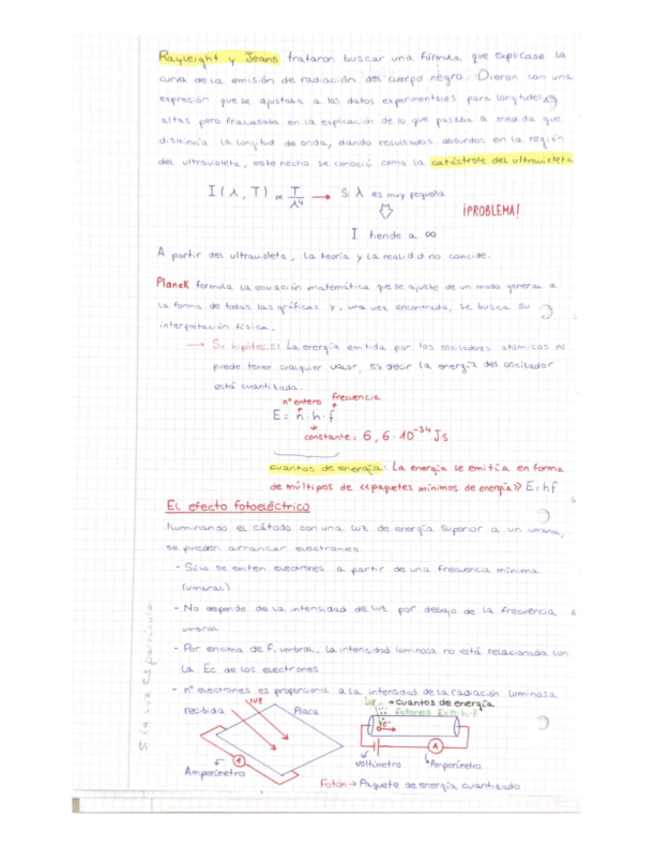 Rayleight y Jeans trataron buscar una fórmula que explicase la
curva de la emisión de radiación del cuerpo negro. Dieron con una
expresión que se ajustaba a los datos experimentales para longitudes
altas pero fracasaba en la explicación de lo que pasaba a medida que
disminuía la longitud de onda, dando resultados absurdos en la región
del ultravioleta, este hecho se conoció como la catástrofe del ultravioleta
I(λ,T) ∝ T/λ⁴ → Si λ es muy pequeña
¡PROBLEMA!
I tiende a ∞
A partir del ultravioleta, la teoría y la realidad no coincide.
Planck formula la ecuación matemática que se ajuste de un modo general a
la forma de todas las gráficas y, una vez encontrada, se busca su
interpretación física.
→ Su hipótesis: La energía emitida por los osciladores atómicos no
puede tener cualquier valor, es decir la energía del oscilador
está cuantizada.
nº entero frecuencia
E = n·h·f
constante = 6,6·10⁻³⁴ Js
cuantos de energía: La energía se emitía en forma
de múltiplos de <<paquetes mínimos de energía>> E=hf
EL efecto fotoeléctrico
Iluminando el cátodo con una luz de energía superior a un umbral,
se pueden arrancar electrones.
- Sólo se emiten electrones a partir de una frecuencia mínima
(umbral)
- No depende de la intensidad de luz por debajo de la frecuencia
umbral
- Por encima de f. umbral, la intensidad luminosa no está relacionada con
la Ec de los electrones
- nº electrones es proporcional a la intensidad de la radiación luminosa
recibida
luz
Placa
Amperímetro
A
Luz → Cuantos de energía
fotones E=h·f
e⁻
A
voltímetro
Amperímetro
Fotón → Paquete de energía cuantizado
Si la luz es partícula